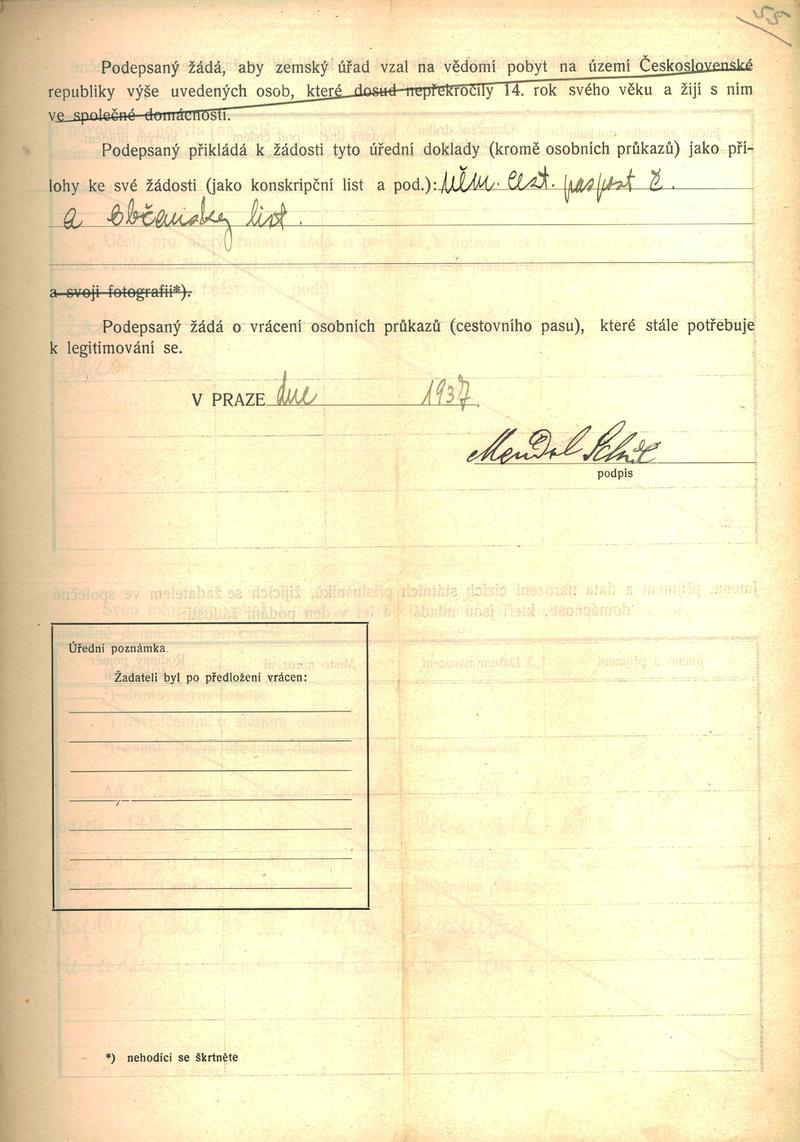 Podepsaný žádá, aby zemský úřad vzal na vědomí pobyt na území Československé
republiky výše uvedených osob, které dosud nepřekročily 14. rok svého věku a žijí s ním
ve společné domácnosti.
Podepsaný přikládá k žádosti tyto úřední doklady (kromě osobních průkazů) jako pří-
lohy ke své žádosti (jako konskripční list a pod.): Něm. cest. paspost č.
a Občanskej list.
a svoji fotografii*).
Podepsaný žádá o vrácení osobních průkazů (cestovního pasu), které stále potřebuje
k legitimování se.
V PRAZE dne 1937
Mendel
podpis
Úřední poznámka
Žadateli byl po předložení vrácen:
*) nehodící se škrtněte